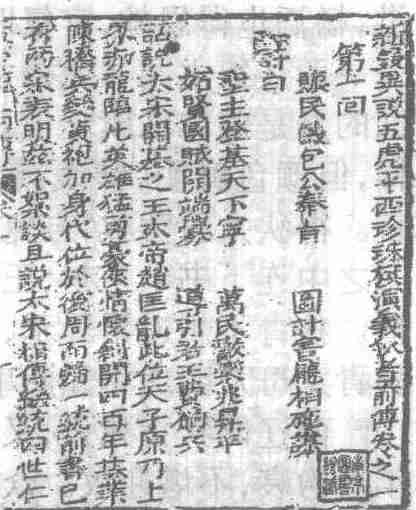 新鐫異說五虎平西珍珠旗演義狄青前傳卷之一
第一回
賑民饑包公奉旨　圖計害龐相施謀
詩曰
聖主登基天下寧　萬民歡樂兆昇平
妬賢國賊開端釁　導引君王費餉兵
話說大宋開基之王太帝趙匡胤此位天子原乃上
界赤龍臨凡英雄猛勇豪俠情懷創開四百年基業
陳橋兵變黃袍加身代位於後周而歸一統前書已
有兩宋表明茲不絮談且說太宋相傳統四世仁